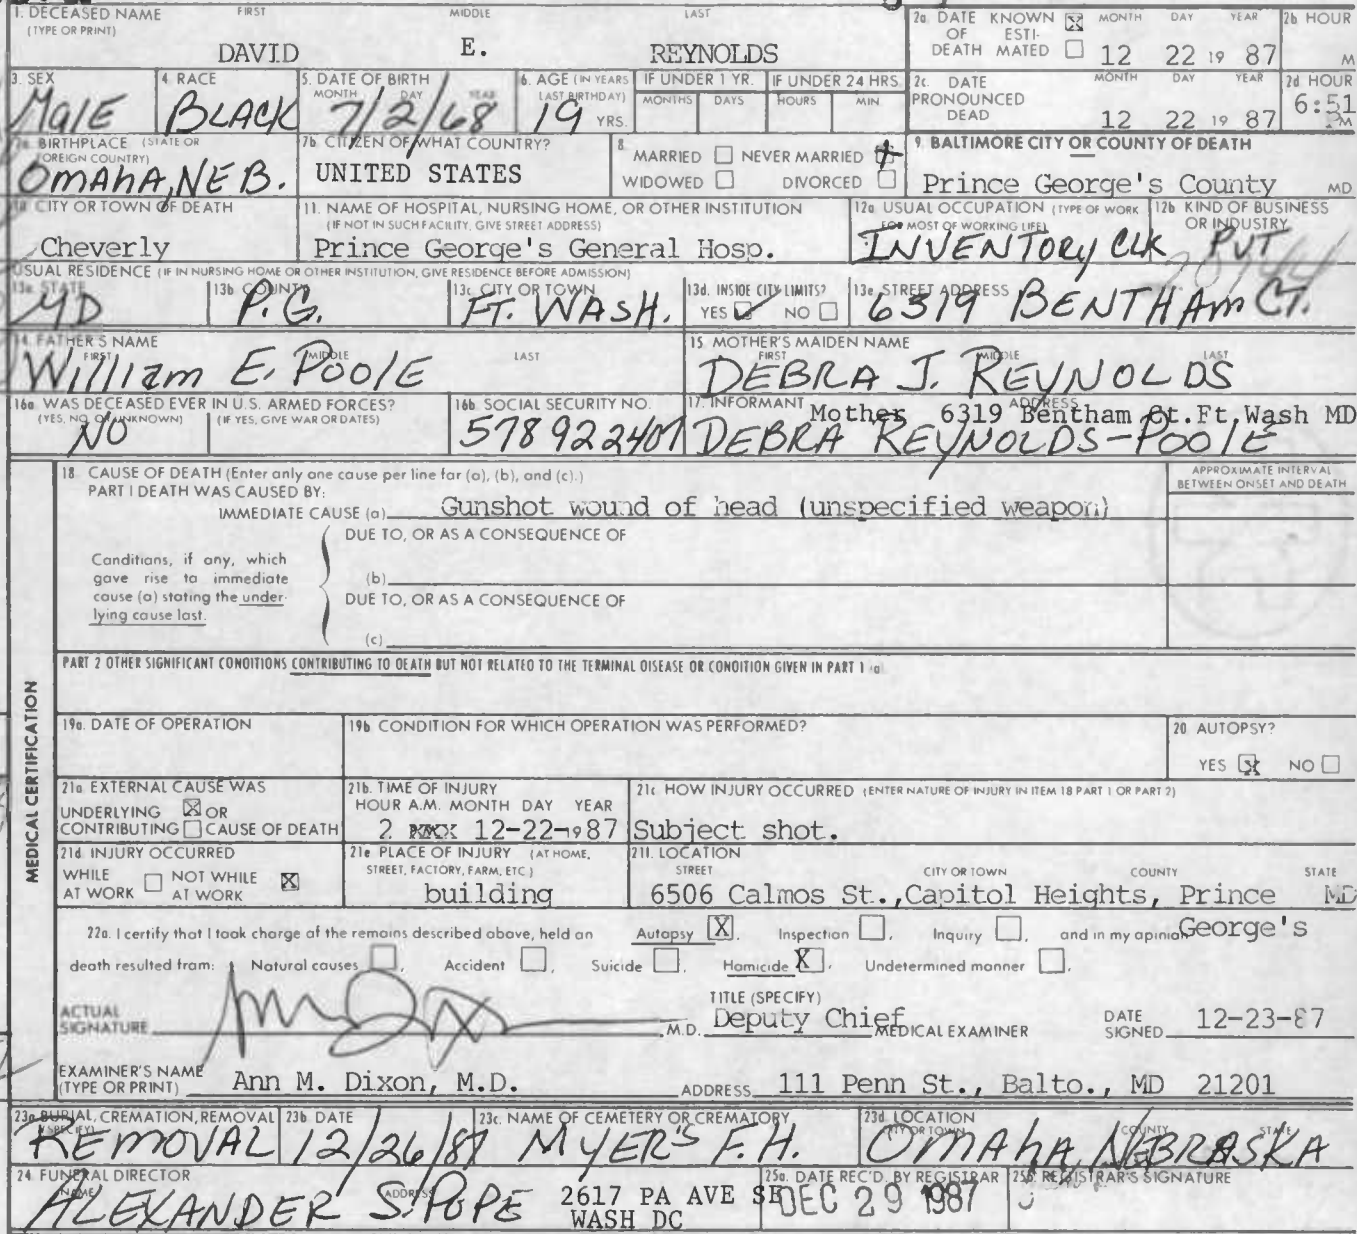 1. DECEASED NAME (TYPE OR PRINT) FIRST MIDDLE LAST
DAVID E. REYNOLDS
2a. DATE OF DEATH KNOWN ☒ ESTIMATED ☐ MONTH DAY YEAR 12 22 19 87
2b HOUR M
3. SEX MalE
4. RACE BLACK
5. DATE OF BIRTH MONTH DAY YEAR 7/2/68
6. AGE (IN YEARS LAST BIRTHDAY) 19 YRS.
IF UNDER 1 YR. MONTHS DAYS
IF UNDER 24 HRS. HOURS MIN.
2c. DATE PRONOUNCED DEAD MONTH DAY YEAR 12 22 19 87
2d HOUR 6:51 PM
7a. BIRTHPLACE (STATE OR FOREIGN COUNTRY) OMAHA, NEB.
7b. CITIZEN OF WHAT COUNTRY? UNITED STATES
8. MARRIED ☐ NEVER MARRIED ☒
WIDOWED ☐ DIVORCED ☐
9. BALTIMORE CITY OR COUNTY OF DEATH
Prince George's County MD
10. CITY OR TOWN OF DEATH Cheverly
11. NAME OF HOSPITAL, NURSING HOME, OR OTHER INSTITUTION
(IF NOT IN SUCH FACILITY, GIVE STREET ADDRESS)
Prince George's General Hosp.
12a USUAL OCCUPATION (TYPE OF WORK FOR MOST OF WORKING LIFE) INVENTORY CLK
12b KIND OF BUSINESS OR INDUSTRY PVT
USUAL RESIDENCE (IF IN NURSING HOME OR OTHER INSTITUTION, GIVE RESIDENCE BEFORE ADMISSION)
13a. STATE MD
13b COUNTY P.G.
13c CITY OR TOWN FT. WASH.
13d. INSIDE CITY LIMITS? YES ☑ NO ☐
13e. STREET ADDRESS 6319 BENTHAM CT.
14. FATHER'S NAME FIRST MIDDLE LAST
William E. Poole
15. MOTHER'S MAIDEN NAME FIRST MIDDLE LAST
DEBRA J. REYNOLDS
16a WAS DECEASED EVER IN U.S. ARMED FORCES?
(YES, NO, OR UNKNOWN) (IF YES, GIVE WAR OR DATES)
NO
16b. SOCIAL SECURITY NO. 578922407
17. INFORMANT ADDRESS
Mother 6319 Bentham Ct. Ft. Wash MD
DEBRA REYNOLDS-POOLE
MEDICAL CERTIFICATION
18. CAUSE OF DEATH (Enter only one cause per line for (a), (b), and (c).)
APPROXIMATE INTERVAL BETWEEN ONSET AND DEATH
PART I DEATH WAS CAUSED BY:
IMMEDIATE CAUSE (a) Gunshot wound of head (unspecified weapon)
DUE TO, OR AS A CONSEQUENCE OF
Conditions, if any, which
gave rise to immediate
cause (a) stating the under-
lying cause last.
(b)
DUE TO, OR AS A CONSEQUENCE OF
(c)
PART 2 OTHER SIGNIFICANT CONDITIONS CONTRIBUTING TO DEATH BUT NOT RELATED TO THE TERMINAL DISEASE OR CONDITION GIVEN IN PART 1 (a)
19a. DATE OF OPERATION
19b CONDITION FOR WHICH OPERATION WAS PERFORMED?
20 AUTOPSY?
YES ☒ NO ☐
21a EXTERNAL CAUSE WAS
UNDERLYING ☒ OR
CONTRIBUTING ☐ CAUSE OF DEATH
21b. TIME OF INJURY
HOUR A.M. MONTH DAY YEAR
2 12-22-1987
21c HOW INJURY OCCURRED (ENTER NATURE OF INJURY IN ITEM 18 PART 1 OR PART 2)
Subject shot.
21d INJURY OCCURRED
WHILE AT WORK ☐ NOT WHILE AT WORK ☒
21e PLACE OF INJURY (AT HOME, STREET, FACTORY, FARM, ETC.)
building
21f. LOCATION
STREET CITY OR TOWN COUNTY STATE
6506 Calmos St., Capitol Heights, Prince George's MD
22a. I certify that I took charge of the remains described above, held an Autopsy ☒, Inspection ☐, Inquiry ☐, and in my opinion
death resulted from: Natural causes ☐, Accident ☐, Suicide ☐, Homicide ☒, Undetermined manner ☐.
ACTUAL SIGNATURE M.D.
TITLE (SPECIFY) Deputy Chief MEDICAL EXAMINER
DATE SIGNED 12-23-87
EXAMINER'S NAME (TYPE OR PRINT) Ann M. Dixon, M.D.
ADDRESS 111 Penn St., Balto., MD 21201
23a BURIAL, CREMATION, REMOVAL (SPECIFY) REMOVAL
23b DATE 12/26/87
23c. NAME OF CEMETERY OR CREMATORY MYER'S F.H.
23d. LOCATION CITY OR TOWN COUNTY STATE OMAHA, NEBRASKA
24 FUNERAL DIRECTOR NAME ADDRESS
ALEXANDER S. POPE 2617 PA AVE SE
WASH DC
25a. DATE REC'D. BY REGISTRAR DEC 29 1987
25b. REGISTRAR'S SIGNATURE